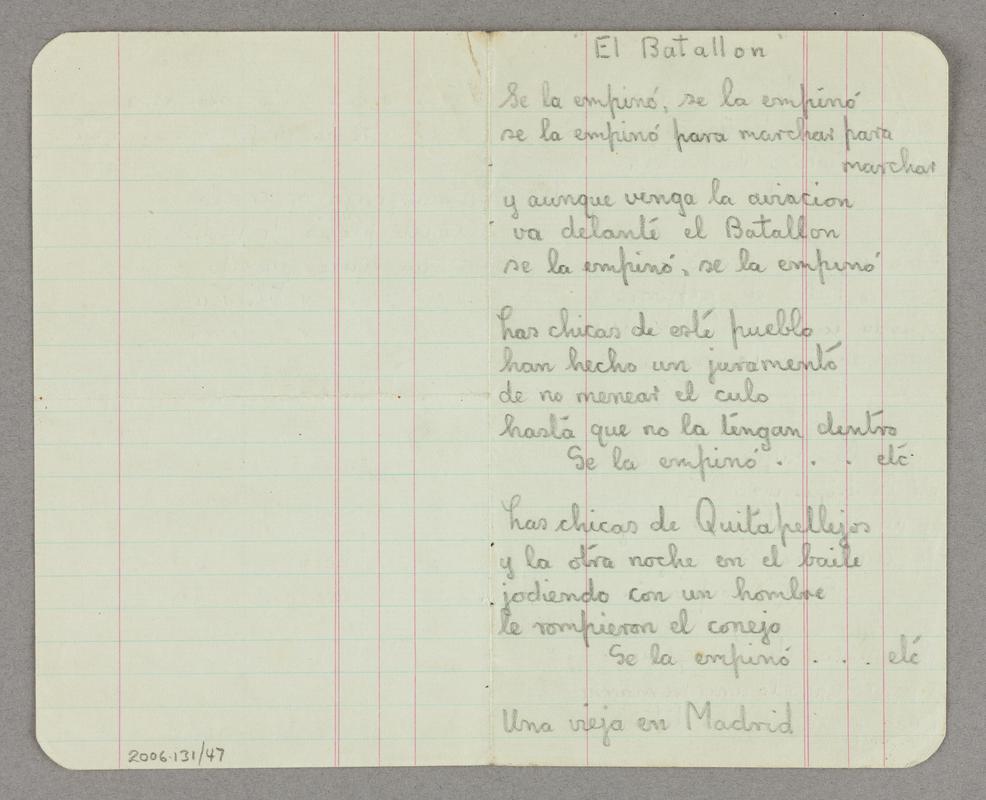 "El Batallon"
Se la empinó, se la empinó
se la empinó para marchar para
marchar
y aunque venga la aviacion
va delante el Batallon
se la empinó, se la empinó
Las chicas de este pueblo
han hecho un juramento
de no menear el culo
hasta que no la tengan dentro
Se la empinó . . . etc.
Las chicas de Quitapellejos
y la otra noche en el baile
jodiendo con un hombre
le rompieron el conejo
Se la empinó . . . etc
Una vieja en Madrid
2006.131/47